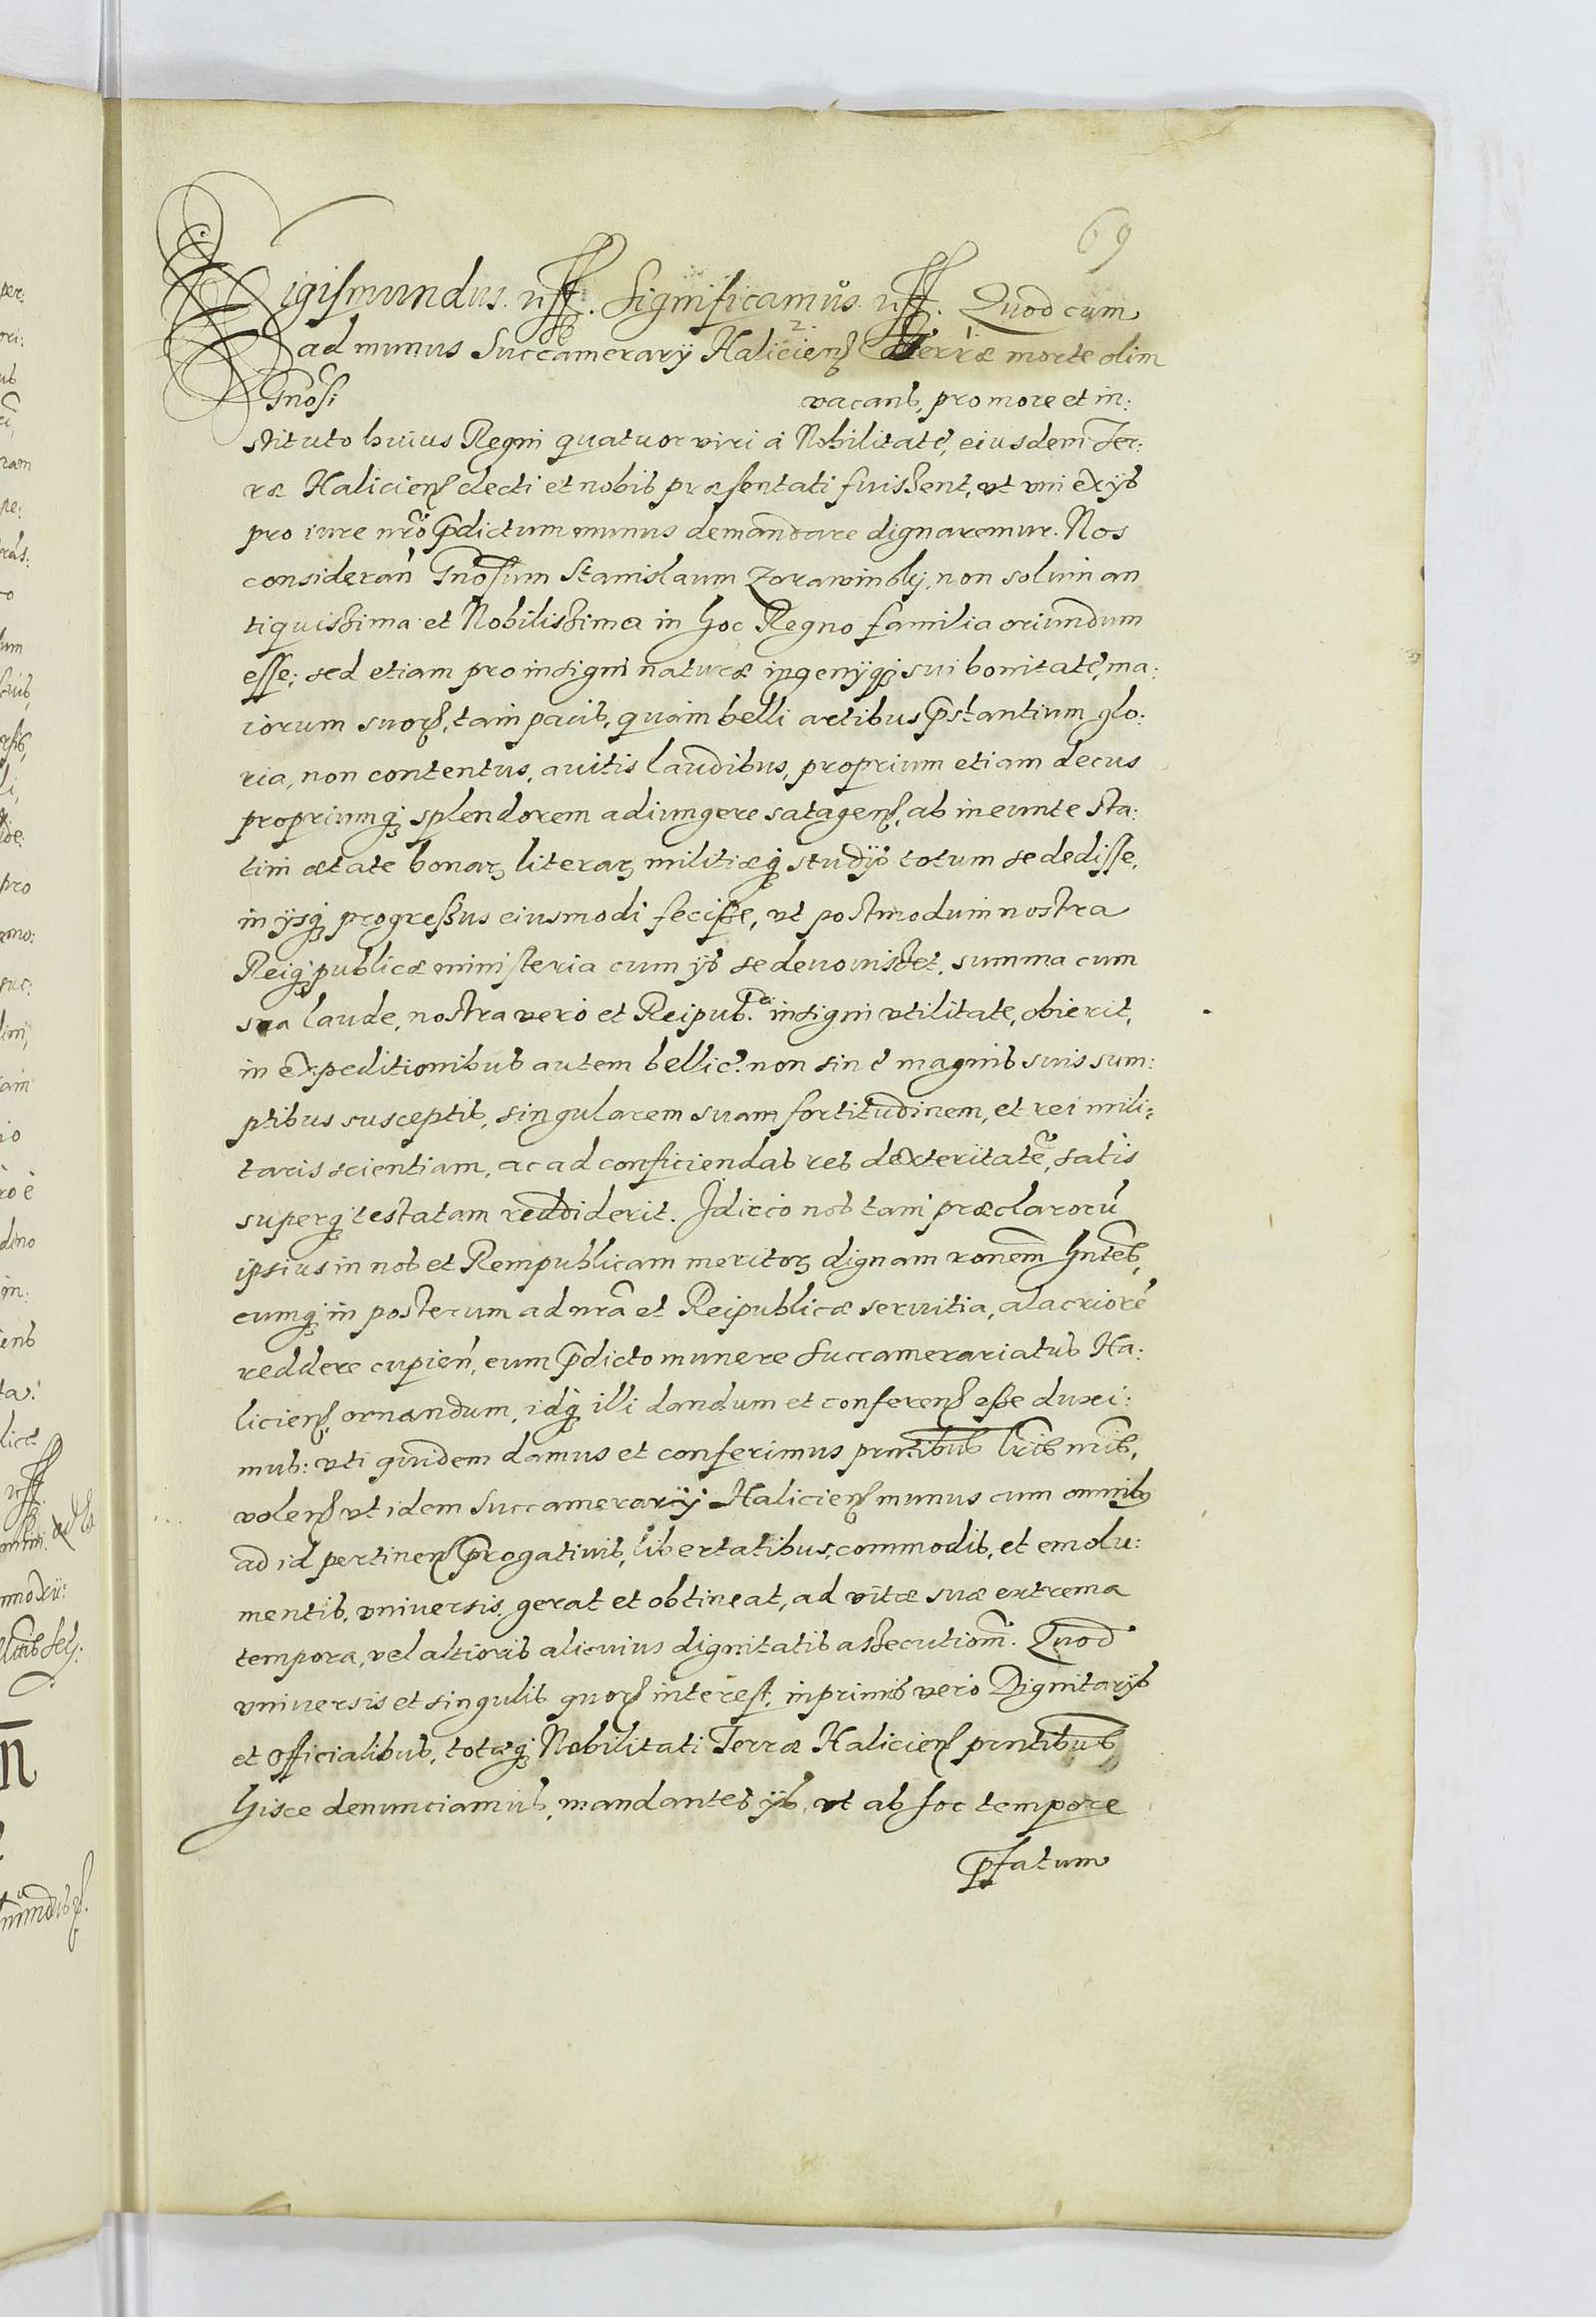 69
Sigismundus. etc. Significamus. etc. Quod cum
ad munus Succamerarij Haliciens Terræ morte olim
Gnosi vacans, pro more et in:
stituto huius Regni quatuor viri à Nobilitate, eiusdem Ter:
ræ Haliciens electi et nobis præsentati fuissent, vt vni ex ijs
pro iure nro pdictum munus demandare dignaremur. Nos
consideran Gnosum Stanislaum Zorawinsky, non solum an
tiquissima et Nobilissima in hoc Regno familia oriundum
esse; sed etiam pro insigni naturæ ingenijq; sui bonitate, ma:
iorum suor, tam pacis, quam belli artibus pstantium glo:
ria, non contentus, auitis laudibus, proprium etiam decus
propriumq; splendorem adiungere satagens, ab ineunte sta:
tim ætate bonar, literar, militiæq; studijs totum se dedisse,
in ijsq; progressus eiusmodi fecisse, vt postmodum nostra
Reiq; publicæ ministeria cum ijs se deuouisset, summa cum
sua laude, nostra vero et Reipub.cæ insigni vtilitate, obierit,
in expeditionibus autem bellic: non sine magnis suis sum:
ptibus susceptis, singularem suam fortitudinem, et rei mili:
taris scientiam, ac ad conficiendas res dexteritate, satis
superq; testatam reddiderit. Idcirco nos tam præclaroru
ipsius in nos et Rempublicam meritor dignam ronem hntes,
eumq; in posterum ad nra et Reipublicæ seruitia, alacriore
reddere cupien, eum pdicto munere Succamerariatus Ha:
liciens, ornandum, idq; illi dandum et conferens esse duxi:
mus: vti quidem damus et conferimus prntibus lris nris,
volens vt idem Succamerarij Haliciens munus cum omnibus
ad id pertinens progatiuis, libertatibus, commodis, et emolu:
mentis, vniuersis, gerat et obtineat, ad vitæ suæ extrema
tempora, vel altioris alicuius dignitatis assecutiom. Quod
vniuersis et singulis quor interest, inprimis vero Dignitarijs
et Officialibus, totiq; Nobilitati Terræ Haliciens prntibus
hisce denunciamus, mandantes ijs, vt ab hoc tempore
pfatum